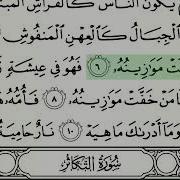 يَكُونُ ٱلنَّاسُ كَٱلْفَرَاشِ ٱلْمَبْ
ٱلْجِبَالُ كَٱلْعِهْنِ ٱلْمَنفُوشِ
ـتْ مَوَٰزِينُهُۥ ٦ فَهُوَ فِى عِيشَةٍ
مَنْ خَفَّتْ مَوَٰزِينُهُۥ ٨ فَأُمُّهُۥ
وَمَآ أَدْرَىٰكَ مَا هِيَهْ ١٠ نَارٌ حَامِيَةٌۢ
سُورَةُ التَّكَاثُرِ